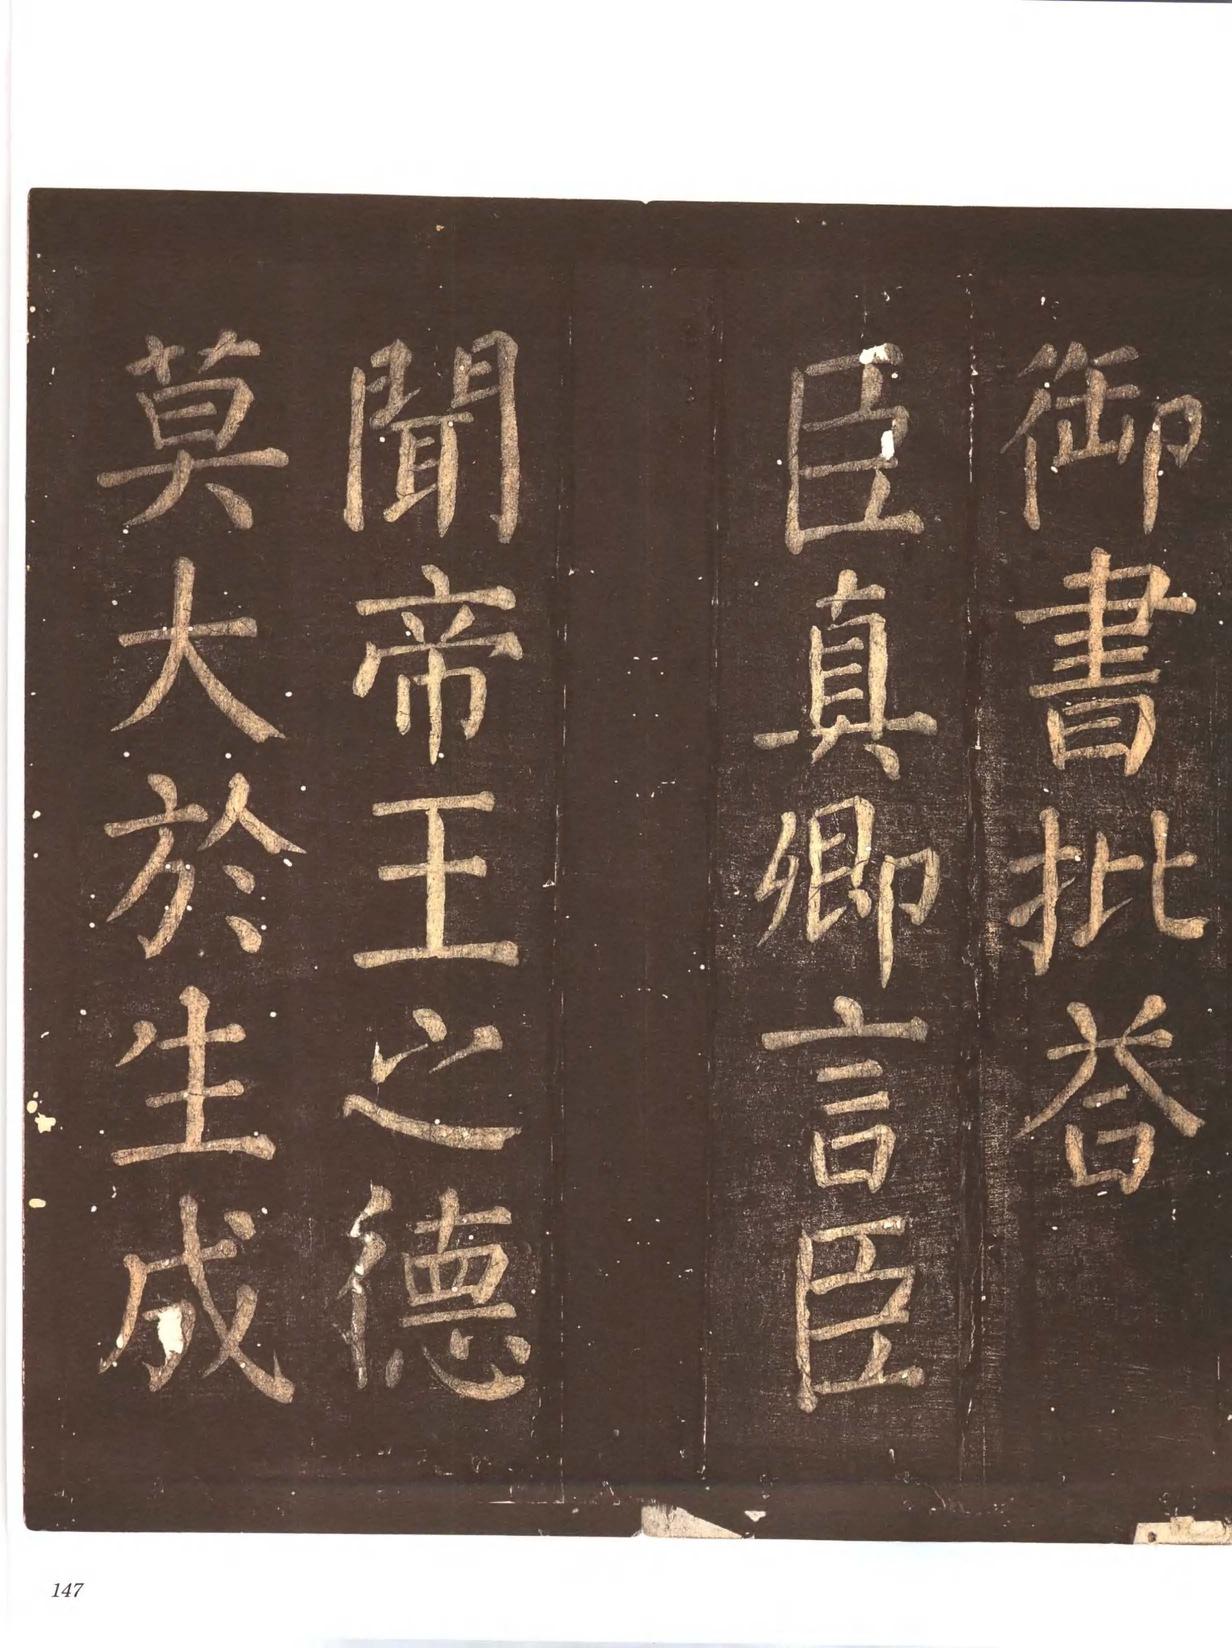 御書批荅
臣真卿言臣
聞帝王之德
莫大於生成
147